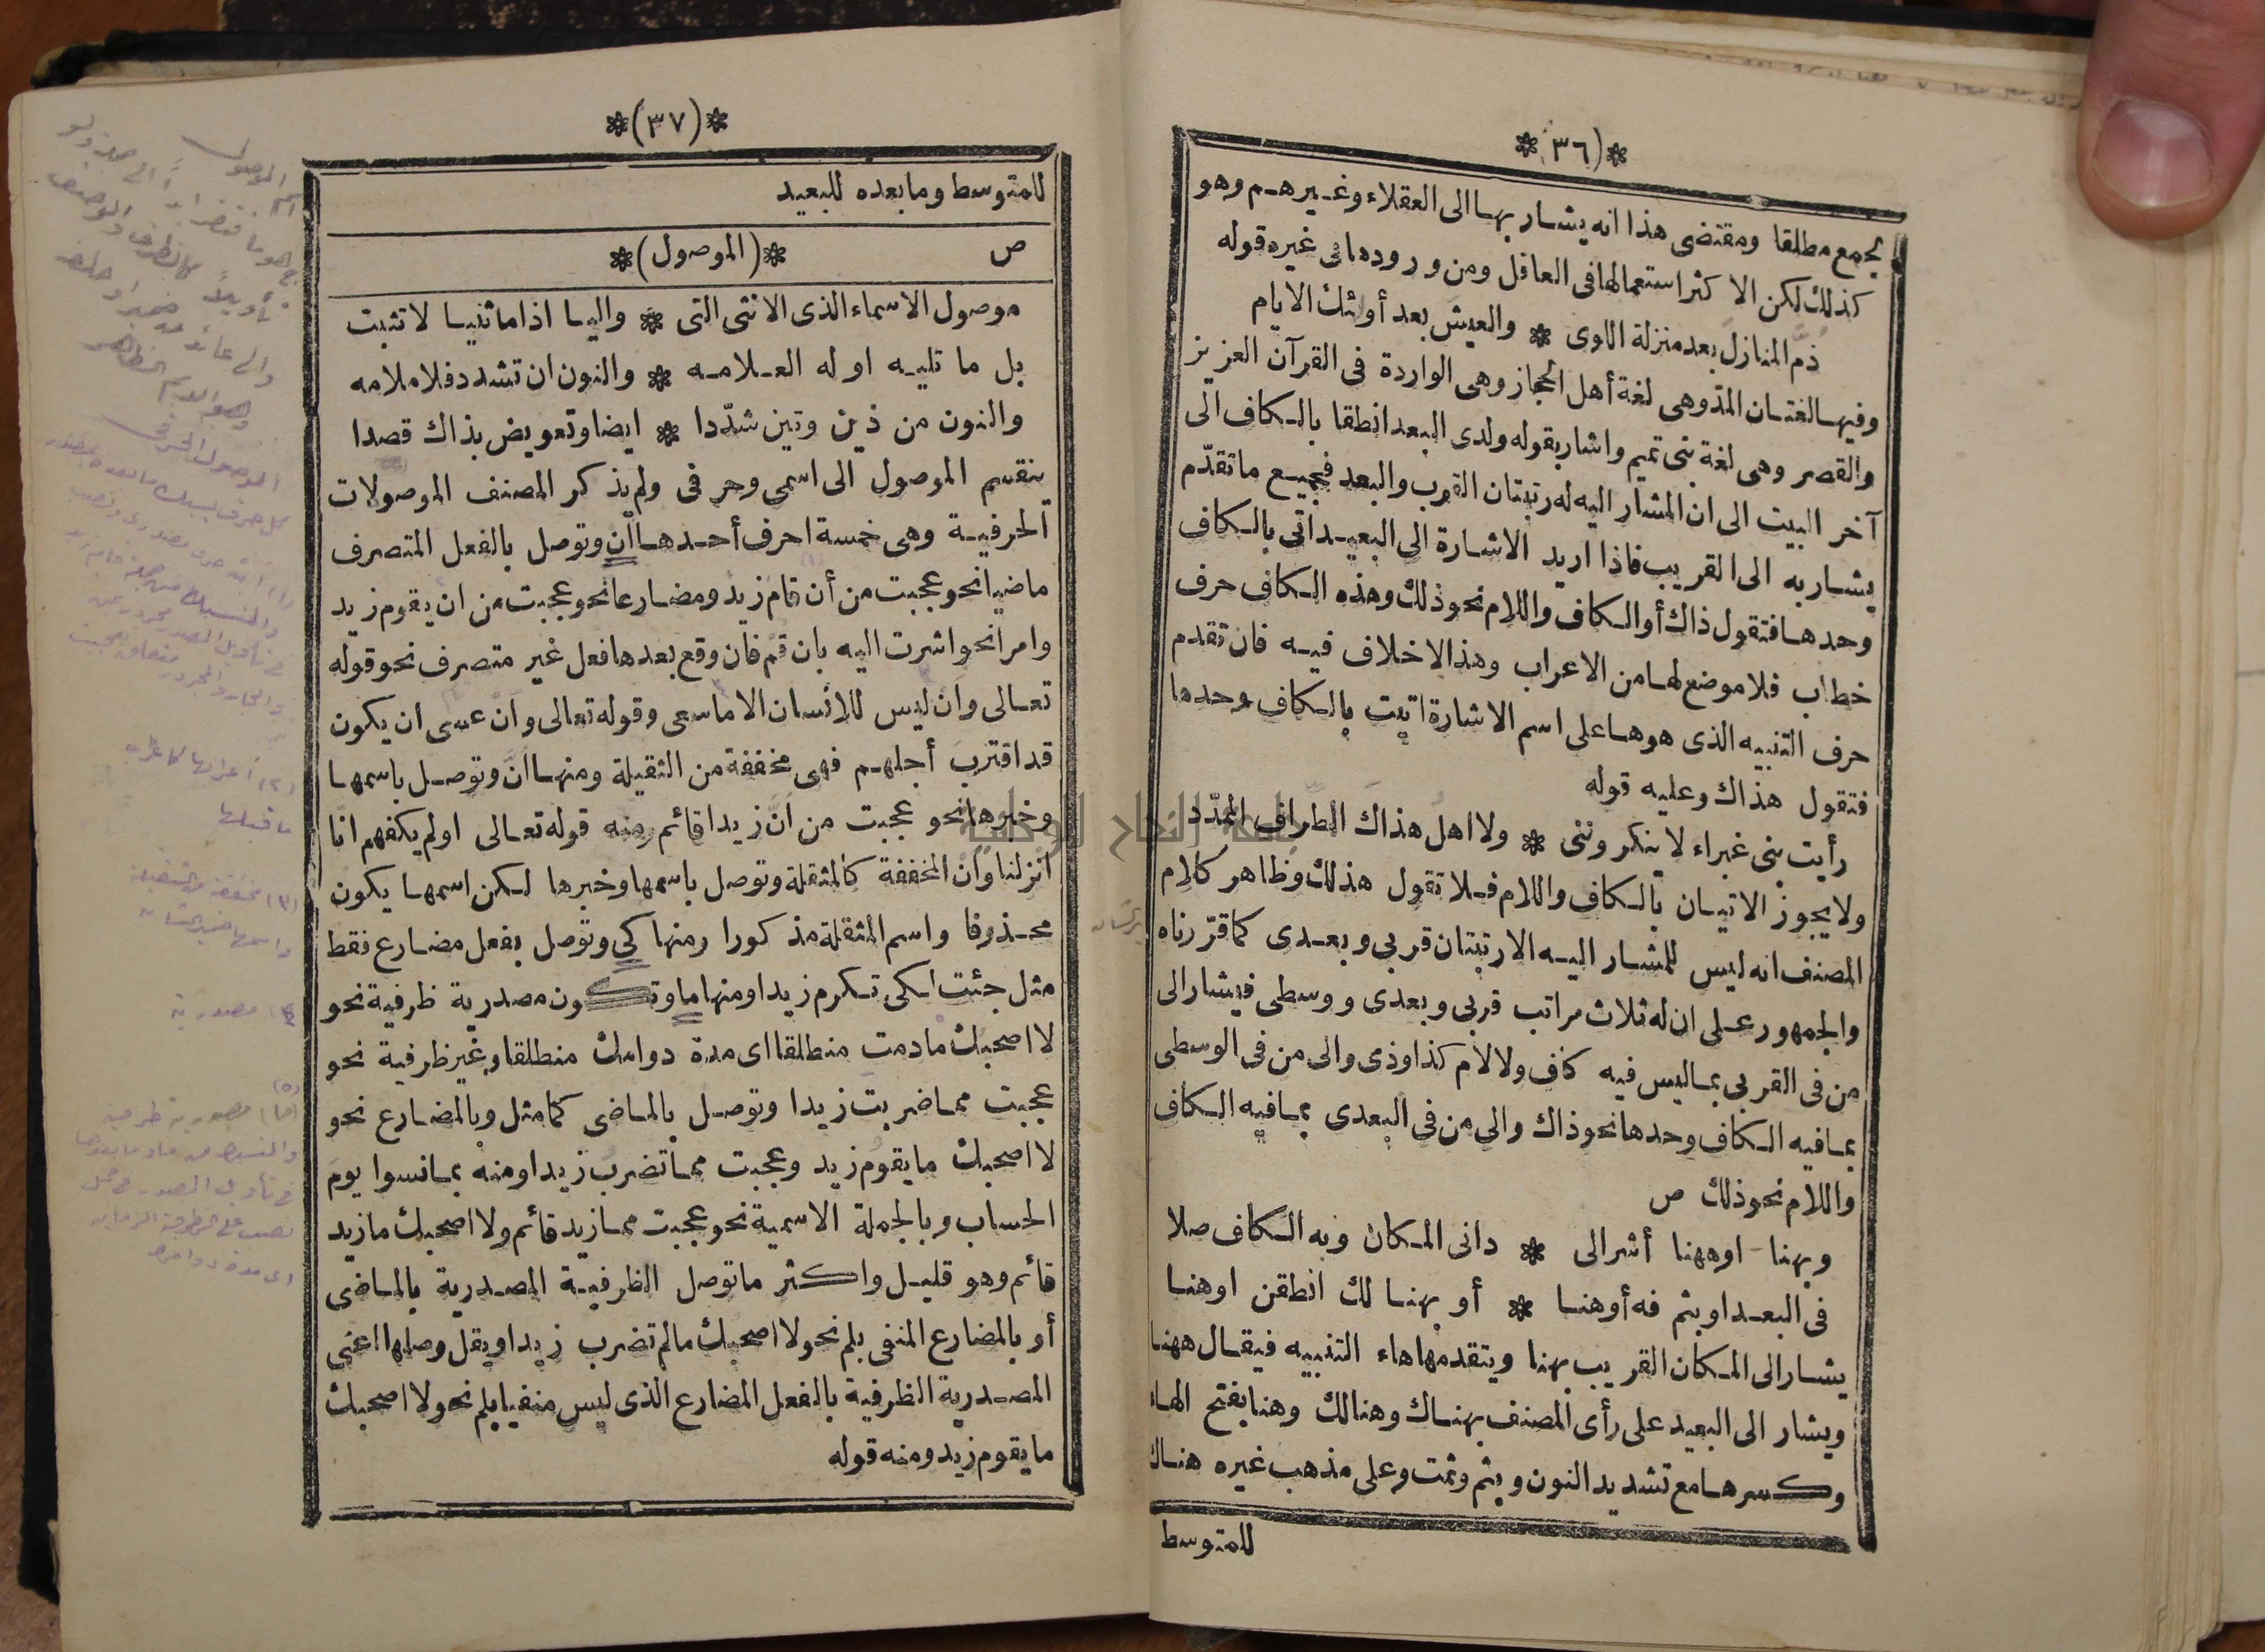 *(٣٦)*
لجمع مطلقا ومقتضى هذا انه يشار بها الى العقلاء وغيرهم وهو
كذلك لكن الاكثر استعمالها فى العاقل ومن ورودها فى غيره قوله
ذمّ المنازل بعد منزلة اللوى * والعيش بعد أولئك الايام
وفيها لغتان المدّ وهى لغة أهل الحجاز وهى الواردة فى القرآن العزيز
والقصر وهى لغة بنى تميم واشار بقوله ولدى البعد انطقا بالكاف الى
آخر البيت الى ان المشار اليه له رتبتان القرب والبعد فجميع ما تقدّم
يشار به الى القريب فاذا اريد الاشارة الى البعيد اتى بالكاف
وحدها فتقول ذاك أو الكاف واللام نحو ذلك وهذه الكاف حرف
خطاب فلا موضع لها من الاعراب وهذا لاخلاف فيه فان تقدم
حرف التنبيه الذى هو ها على اسم الاشارة اتيت بالكاف وحدها
فتقول هذاك وعليه قوله
رأيت بنى غبراء لا ينكروننى * ولا اهل هذاك الطراف الممدّد
ولا يجوز الاتيان بالكاف واللام فلا تقول هذلك وظاهر كلام
المصنف انه ليس للمشار اليه الا رتبتان قربى وبعدى كما قرّرناه
والجمهور على ان له ثلاث مراتب قربى وبعدى ووسطى فيشار الى
من فى القربى بما ليس فيه كاف ولا لام كذا وذى والى من فى الوسطى
بما فيه الكاف وحدها نحو ذاك والى من فى البعدى بما فيه الكاف
واللام نحو ذلك ص
وبهنا اوههنا أشر الى * دانى المكان وبه الكاف صلا
فى البعد او بثم فه أو هنا * أو بهنا لك انطقن اوهنا
يشار الى المكان القريب بهنا ويتقدمها هاء التنبيه فيقال ههنا
ويشار الى البعيد على رأى المصنف بهناك وهنالك وهنا بفتح الهاء
وكسرها مع تشديد النون وبثم وثمت وعلى مذهب غيره هناك
للمتوسط
*(٣٧)*
للمتوسط وما بعده للبعيد
ص *(الموصول)*
موصول الاسماء الذى الانثى التى * واليا اذا ما ثنيا لا تثبت
بل ما تليه اوله العلامه * والنون ان تشدد فلا ملامه
والنون من ذين وتين شدّدا * ايضا وتعويض بذاك قصدا
ينقسم الموصول الى اسمى وحرفى ولم يذكر المصنف الموصولات
الحرفية وهى خمسة احرف أحدها أن وتوصل بالفعل المتصرف
ماضيا نحو عجبت من أن قام زيد ومضارعا نحو عجبت من ان يقوم زيد
وامرا نحو اشرت اليه بان قم فان وقع بعدها فعل غير متصرف نحو قوله
تعالى وأن ليس للانسان الا ما سعى وقوله تعالى وأن عسى ان يكون
قد اقترب أجلهم فهى مخففة من الثقيلة ومنها انّ وتوصل باسمها
وخبرها نحو عجبت من انّ زيدا قائم ومنه قوله تعالى اولم يكفهم انا
انزلنا وأن المخففة كالمثقلة وتوصل باسمها وخبرها لكن اسمها يكون
محذوفا واسم المثقلة مذكورا ومنها كى وتوصل بفعل مضارع فقط
مثل جئت لكى تكرم زيدا ومنها ما وتكون مصدرية ظرفية نحو
لا اصحبك ما دمت منطلقا اى مدة دوامك منطلقا وغير ظرفية نحو
عجبت مما ضربت زيدا وتوصل بالماضى كما مثل وبالمضارع نحو
لا اصحبك ما يقوم زيد وعجبت مما تضرب زيدا ومنه بما نسوا يوم
الحساب وبالجملة الاسمية نحو عجبت مما زيد قائم ولا اصحبك ما زيد
قائم وهو قليل واكثر ما توصل الظرفية المصدرية بالماضى
أو بالمضارع المنفى بلم نحو لا اصحبك ما لم تضرب زيدا ويقل وصلها اعنى
المصدرية الظرفية بالفعل المضارع الذى ليس منفيا بلم نحو لا اصحبك
ما يقوم زيد ومنه قوله
جامعة النجاح الوطنية
(٢) أعرابها كاعراب
ما قبلها
(٣) مخففة من الثقيلة
واسمها ضمير الشان
(٤) مصدرية
(٥)